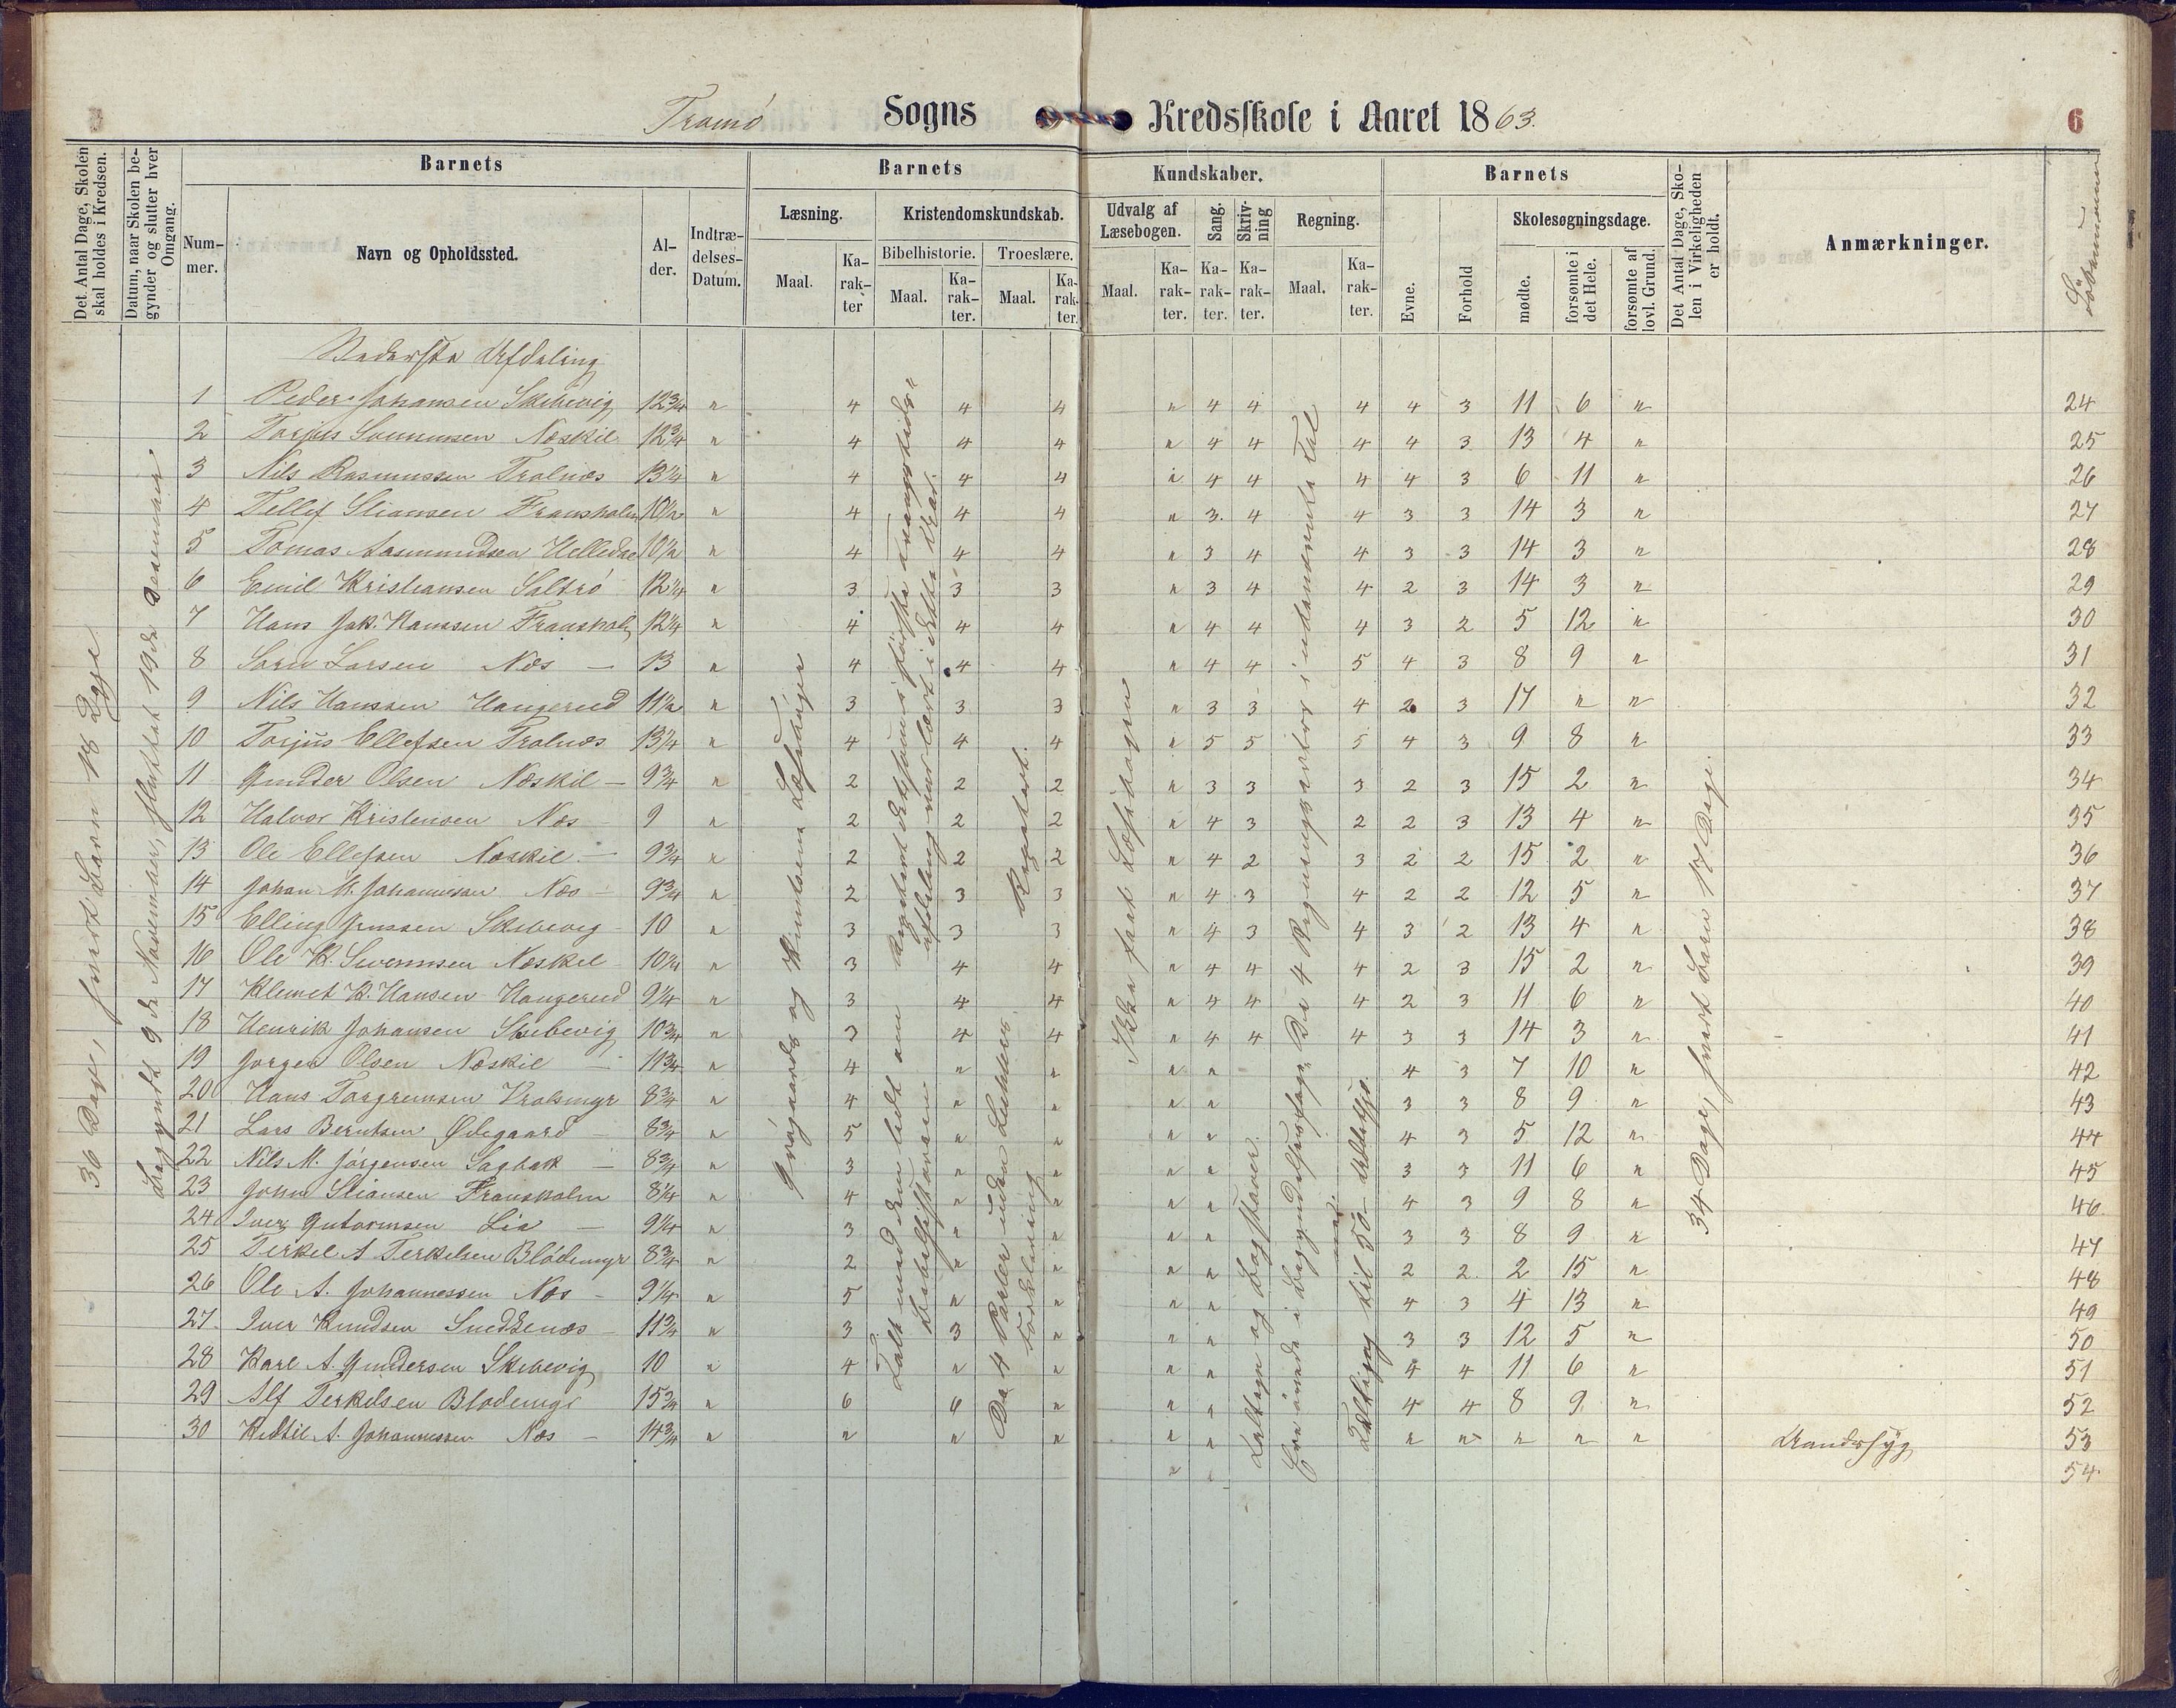 Tromö Sogns Kredsskole i Aaret 1863.
6
Det Antal Dage, Skolen skal holdes i Kredsen.
Datum, naar Skolen begynder og slutter hver Omgang.
Barnets
Nummer.
Navn og Opholdssted.
Alder.
Indtrædelses-Datum.
Barnets Kundskaber.
Læsning.
Maal.
Karakter
Kristendomskundskab.
Bibelhistorie.
Maal.
Karakter.
Troeslære.
Maal.
Karakter.
Udvalg af Læsebogen.
Maal.
Karakter.
Sang.
Karakter.
Skrivning
Karakter.
Regning.
Maal.
Karakter.
Barnets
Evne.
Forhold
Skolesøgningsdage.
mødte.
forsømte i det Hele.
forsømte af lovl. Grund.
Det Antal Dage, Skolen i Virkeligheden er holdt.
Anmærkninger.
Löbenummer
Nederste Afdeling
1 Peder Johansen Skibevig 12 3/4 " 4 4 4 " 4 4 4 4 3 11 6 " 24
2 Torjus Sonumsen Næskil 12 3/4 " 4 4 4 " 4 4 4 4 3 13 4 " 25
3 Nils Rasmussen Tralnæs 13 1/4 " 4 4 4 " 4 4 4 4 3 6 11 " 26
4 Tellef Stiansen Fransholm 10 1/2 " 4 4 4 " 3 4 4 3 3 14 3 " 27
5 Tomas Aasmundsen 10 1/2 " 4 4 4 " 3 4 4 3 3 14 3 " 28
6 Emil Kristiansen Saltrö 12 1/4 " 3 3 3 " 3 4 4 2 3 14 3 " 29
7 Hans Jak. Hanssen Fransholm 12 1/4 " 4 4 4 " 4 4 4 3 2 5 12 " 30
8 Sörn Larsen Næs — 13 " 4 4 4 " 4 4 5 4 3 8 9 " 31
9 Nils Hanssen Hangerud 11 1/2 " 3 3 3 " 3 3 4 2 3 17 " " 32
10 Torjus Ellefsen Tralnæs 13 1/4 " 4 4 4 " 5 5 5 4 3 9 8 " 33
11 Gunder Olsen Næskil — 9 3/4 " 2 2 2 " 3 3 3 2 3 15 2 " 34
12 Halvor Kristensen Næs 9 " 2 2 2 " 4 3 2 2 3 13 4 " 35
13 Ole Ellefsen Næskil — 9 3/4 " 2 2 2 " 4 2 3 2 2 15 2 " 36
14 Johan M. Johannessen Næs 9 3/4 " 2 3 3 " 4 3 4 2 2 12 5 " 37
15 Elling Jenssen Skibevig 10 " 3 3 3 " 4 3 4 3 2 13 4 " 38
16 Ole K. Svennsen Næskil 10 1/4 " 3 4 4 " 4 4 4 2 3 15 2 " 39
17 Klemet K. Hansen Hangerud 9 1/4 " 3 4 4 " 4 4 4 2 3 11 6 " 40
18 Henrik Johansen Skibevig 10 3/4 " 3 4 4 " 4 4 4 3 3 14 3 " 41
19 Jörgen Olsen Næskil — 11 3/4 " 4 " " " " 4 3 7 10 " 42
20 Hans Torgrimsen 8 3/4 " 4 " " " " 3 3 8 9 " 43
21 Lars Berntsen Ødegaard 8 3/4 " 5 " " " " 4 3 5 12 " 44
22 Nils M. Jörgensen Sagbak — 8 3/4 " 3 " " " " 3 3 11 6 " 45
23 John Stiansen Fransholm 8 1/4 " 4 " " " " 4 3 9 8 " 46
24 Iver Gutormsen Lia — 9 1/4 " 3 " " " " 3 3 8 9 " 47
25 Terkel A Terkelsen Blödemyr 8 3/4 " 2 " " " " 2 2 2 15 " 48
26 Ole A. Johannessen Næs — 9 1/4 " 5 " " " " 4 3 4 13 " 49
27 Iver Knudsen 11 3/4 " 3 3 " " " 3 3 12 5 " 50
28 Karl A. Gundersen Skibevig 10 " 4 " " " " 4 4 11 6 " 51
29 Alf Terkelsen Blödemyr 15 3/4 " 6 6 " " " 4 4 8 9 " 52
30 Kittil A. Johannessen Næs — 14 3/4 " " " " " " " " " " " Aandssyg 53
54
36 Dage, hvert Barn 18 Dage
Begyndt 9de November, sluttet 19de December
Ikke havt Læsebogen
34 Dage, hvert Barn 17 Dage.